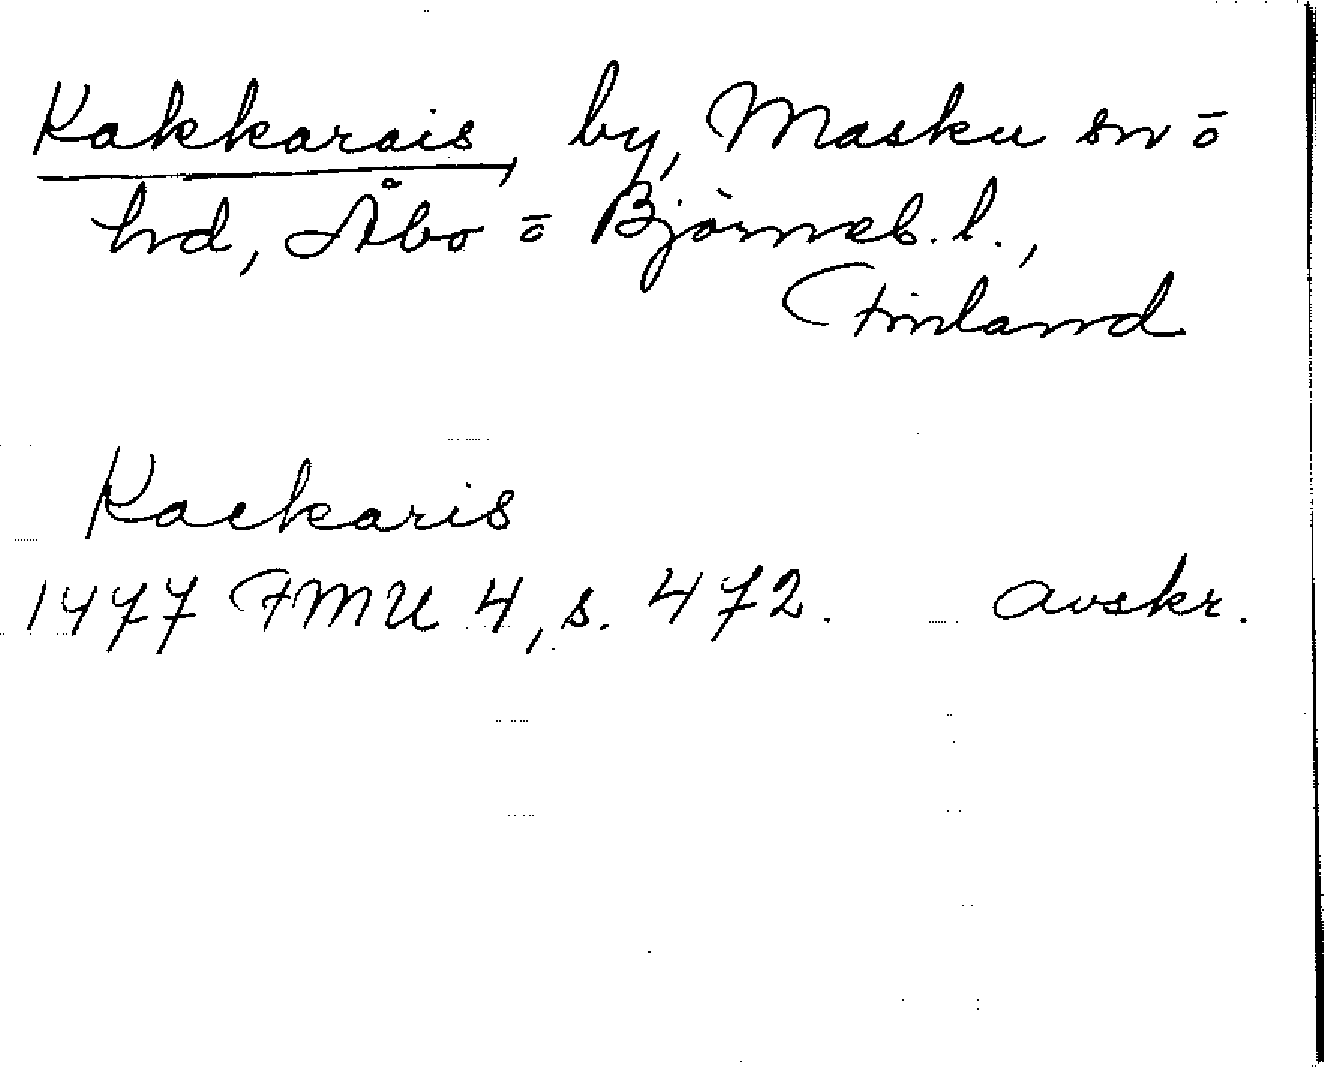 Kakkarais, by, Masku sn o
hd, Åbo o Björneb. l.,
Finland
Kackaris
1477 FMU 4, s. 472. avskr.